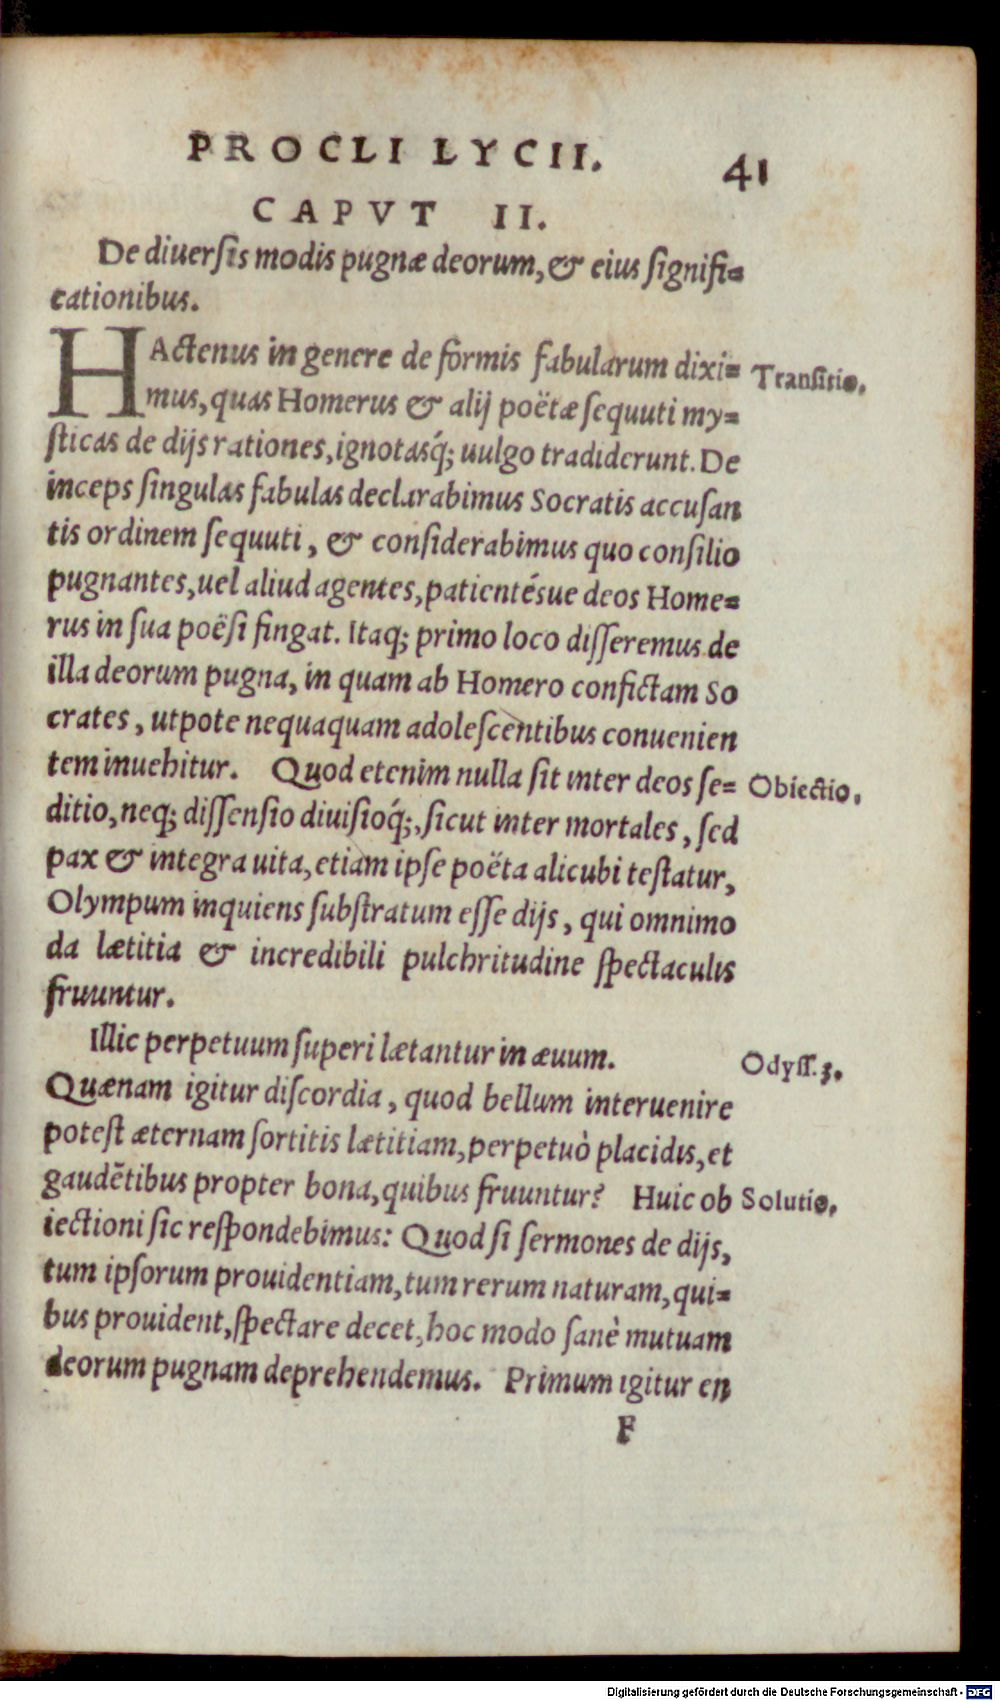 PROCLI LYCII. 41
CAPVT II.
De diuersis modis pugnæ deorum, & eius signifi=
cationibus.
HActenus in genere de formis fabularum dixi= Transitio.
mus, quas Homerus & alij poëtæ sequuti my=
sticas de dijs rationes, ignotasq́; uulgo tradiderunt. De
inceps singulas fabulas declarabimus Socratis accusan
tis ordinem sequuti, & considerabimus quo consilio
pugnantes, uel aliud agentes, patientésue deos Home=
rus in sua poësi fingat. Itaq; primo loco disseremus de
illa deorum pugna, in quam ab Homero confictam So
crates, utpote nequaquam adolescentibus conuenien
tem inuehitur. Quod etenim nulla sit inter deos se= Obiectio.
ditio, neq; dissensio diuisioq́;, sicut inter mortales, sed
pax & integra uita, etiam ipse poëta alicubi testatur,
Olympum inquiens substratum esse dijs, qui omnimo
da lætitia & incredibili pulchritudine spectaculis
fruuntur.
Illic perpetuum superi lætantur in æuum. Odyss. ʒ.
Quænam igitur discordia, quod bellum interuenire
potest æternam sortitis lætitiam, perpetuò placidis, et
gaudẽtibus propter bona, quibus fruuntur? Huic ob Solutio.
iectioni sic respondebimus: Quod si sermones de dijs,
tum ipsorum prouidentiam, tum rerum naturam, qui=
bus prouident, spectare decet, hoc modo sanè mutuam
deorum pugnam deprehendemus. Primum igitur en
F
Digitalisierung gefördert durch die Deutsche Forschungsgemeinschaft - DFG